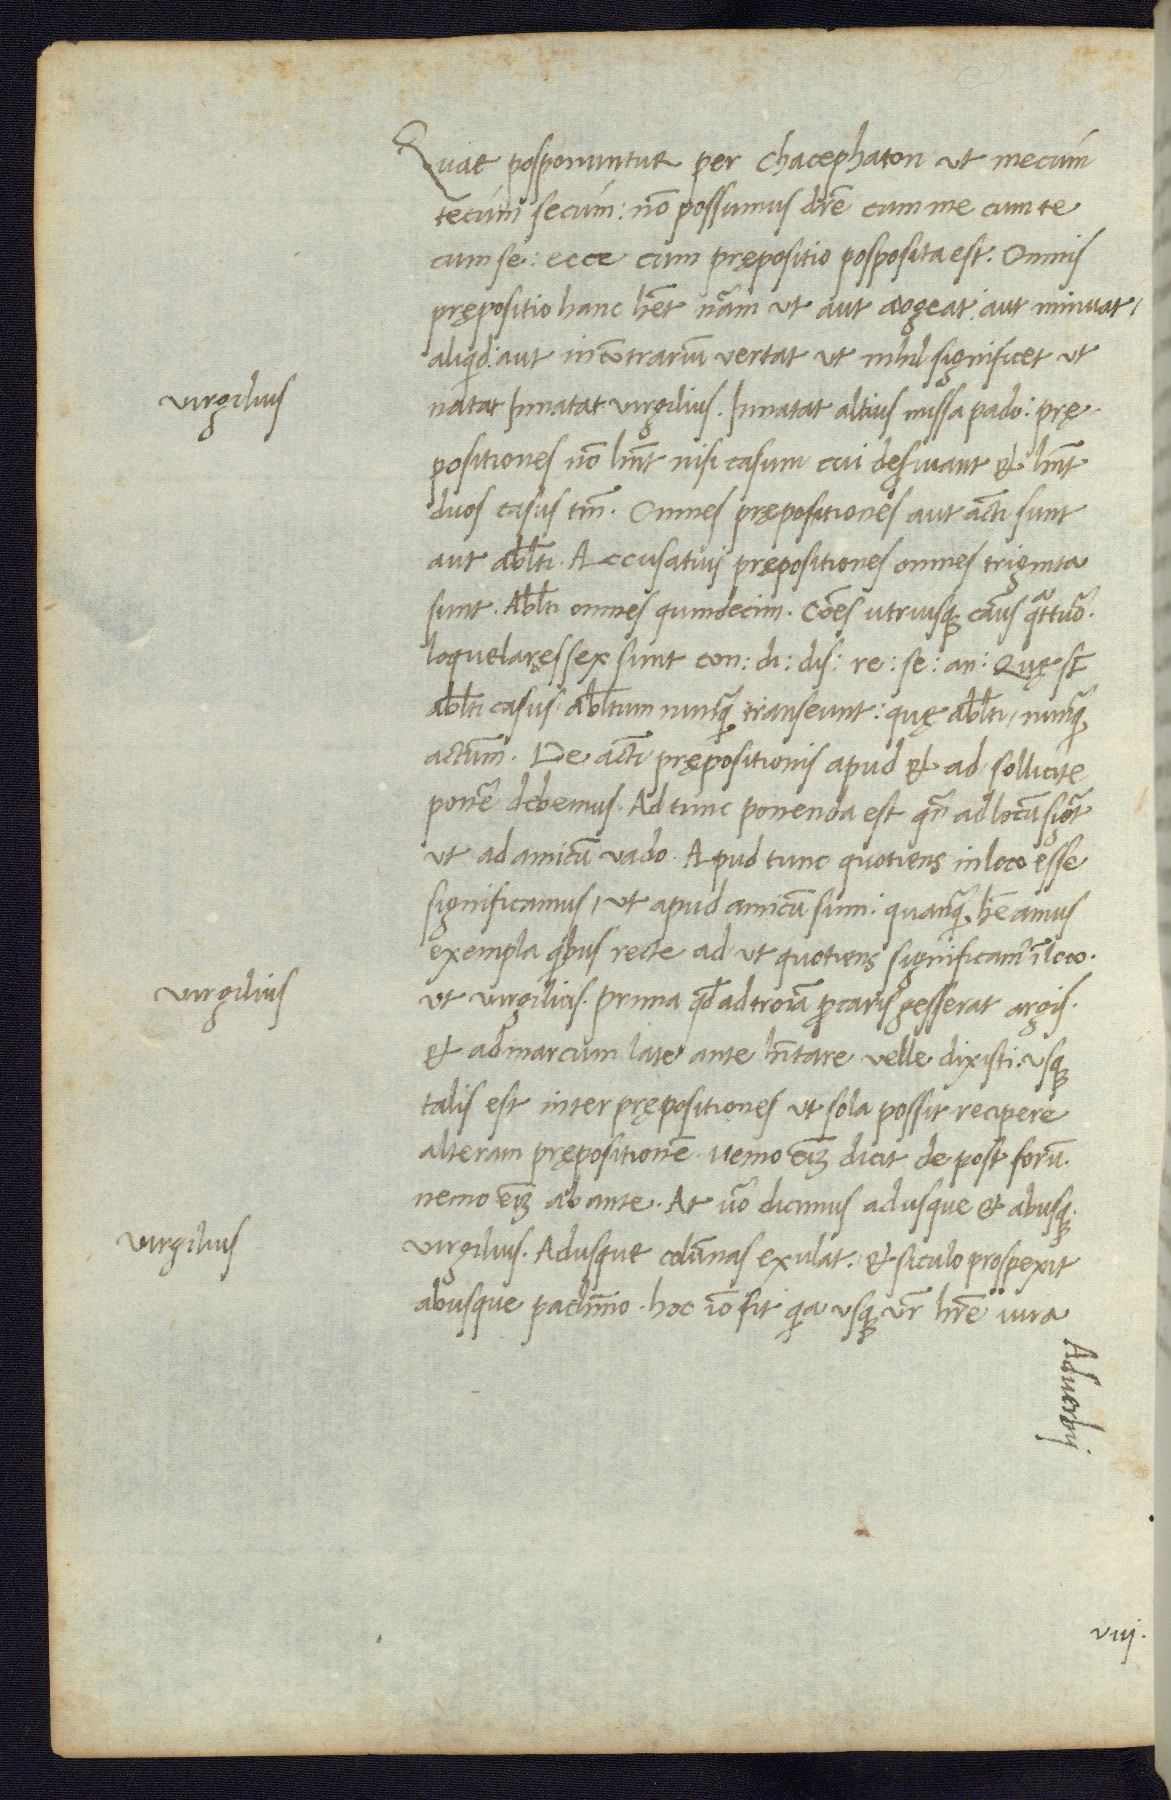 Quae posponuntur per chacephaton ut mecum
tecum secum: nō possumus dr̄e cum me cum te
cum se: ecce cum prępositio posposita est. Omnis
prępositio hanc hēt nām ut aut aogeat: aut minuat,
aliqd: aut in cōtrariū vertat ut nihil significet ut
virgilius
natat Innatat virgilius. Innatat altius missa pado: prę
positiones nō hn̄t nisi casum cui deserviant et hn̄t
duos casus tm̄. Omnes prępositiones aut acti sunt
aut ablti. Accusativi prępositiones omnes triginta
sunt. Ablti omnes quindecim. Cōēs utriusq caus qttuo.
loquelaręs sex sunt con: di: dis: re: se: an: Quę st̄
ablti casus. abltum nunq transeunt: quę ablti, nunq
actum. De acti prępositionis apud et ad sollicite
ponē debemus. Ad tunc ponenda est qn̄ ad locū sigt
ut ad amicū vado. Apud tunc quotiens in loco esse
significamus, ut apud amicū sum: quanq hēamus
exempla qbus recte ad ut quotiens significam' ī loco.
virgilius
ut virgilius. Prima qd ad troiā p caris gesserat argis.
et ad marcum late ante hītare velle dixisti. usq
talis est inter prępositiones ut sola possit recipere
alteram prępositionē. nemo eīz dicit de post forū.
nemo eīz ab ante. At vō dicimus adusque et abusq.
virgilius
virgilius. Adusque colūnas exulat: et siculo prospexit
abusque pachīno. hoc iō fit qa usq vr̄ hr̄e iura
Adverbij
viij.